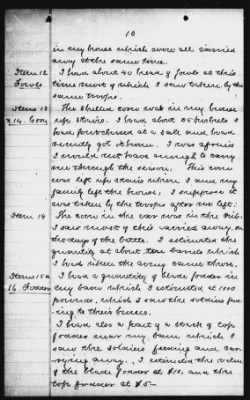 10
in my house which were all carried
away at the same time.
Item 12 I had about 40 head of fowls at this
Fowls time most of which I saw taken by the
same troops.
Items 13 The shelled corn was in my house
& 14. Corn up stairs. I had about 25 bushels I
had purchased at a sale and had
recently got it home. I was afraid
I would not have enough to carry
me through the season. This corn
was left up stairs when I and my
family left the house; I suppose it
was taken by the troops after we left.
Item 14 The corn in the ear was in the crib.
I saw most of this carried away, on
the days of the battle. I estimated the
quantity at about ten barrels which
I had when the army came there.
Items 15 & I had a quantity of blade fodder in
16 Fodder my barn which I estimated at 1000
pounds, which I saw the soldiers feed-
ing to their horses.
I had also a part of a stack of top
fodder near my barn which I
saw the soldiers feeding and car-
rying away. I estimated the value
of the blade fodder at $10. and the
top fodder at $5-